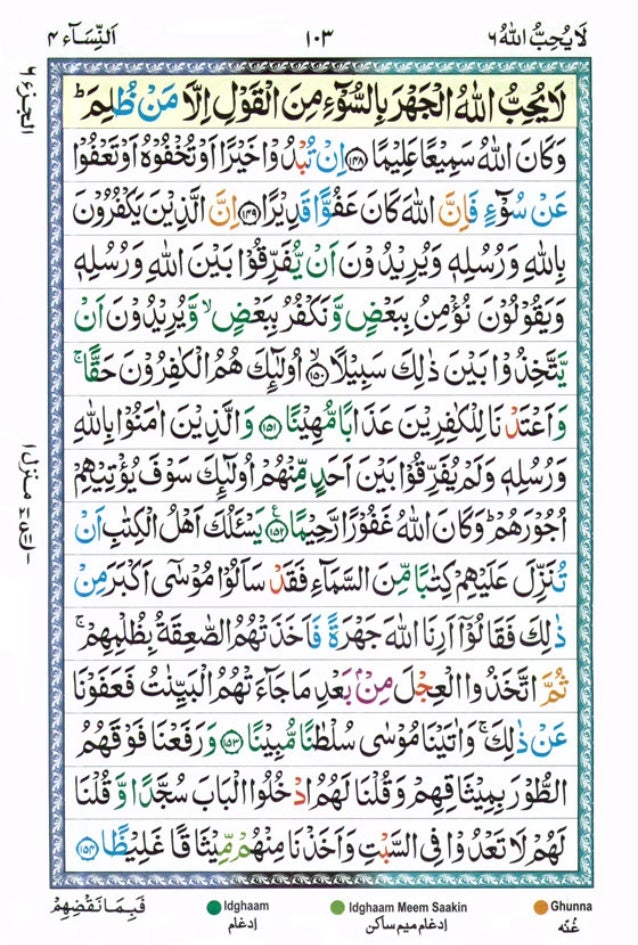 لَا يُحِبُّ اللّٰهُ ٦
١٠٣
اَلنِّسَآء ٤
الجزء ٦
لَا يُحِبُّ اللّٰهُ الْجَهْرَ بِالسُّوْٓءِ مِنَ الْقَوْلِ اِلَّا مَنْ ظُلِمَ ؕ
وَكَانَ اللّٰهُ سَمِيْعًا عَلِيْمًا ﴿١٤٨﴾ اِنْ تُبْدُوْا خَيْرًا اَوْ تُخْفُوْهُ اَوْ تَعْفُوْا
عَنْ سُوْٓءٍ فَاِنَّ اللّٰهَ كَانَ عَفُوًّا قَدِيْرًا ﴿١٤٩﴾ اِنَّ الَّذِيْنَ يَكْفُرُوْنَ
بِاللّٰهِ وَرُسُلِهٖ وَيُرِيْدُوْنَ اَنْ يُّفَرِّقُوْا بَيْنَ اللّٰهِ وَرُسُلِهٖ
وَيَقُوْلُوْنَ نُؤْمِنُ بِبَعْضٍ وَّنَكْفُرُ بِبَعْضٍ ۙ وَّيُرِيْدُوْنَ اَنْ
يَّتَّخِذُوْا بَيْنَ ذٰلِكَ سَبِيْلًا ۙ﴿١٥٠﴾ اُولٰٓئِكَ هُمُ الْكٰفِرُوْنَ حَقًّا ۚ
وَاَعْتَدْنَا لِلْكٰفِرِيْنَ عَذَابًا مُّهِيْنًا ﴿١٥١﴾ وَالَّذِيْنَ اٰمَنُوْا بِاللّٰهِ
وَرُسُلِهٖ وَلَمْ يُفَرِّقُوْا بَيْنَ اَحَدٍ مِّنْهُمْ اُولٰٓئِكَ سَوْفَ يُؤْتِيْهِمْ
اُجُوْرَهُمْ ؕ وَكَانَ اللّٰهُ غَفُوْرًا رَّحِيْمًا ﴿١٥٢﴾ ع يَسْئَلُكَ اَهْلُ الْكِتٰبِ اَنْ
تُنَزِّلَ عَلَيْهِمْ كِتٰبًا مِّنَ السَّمَآءِ فَقَدْ سَاَلُوْا مُوْسٰٓى اَكْبَرَ مِنْ
ذٰلِكَ فَقَالُوْٓا اَرِنَا اللّٰهَ جَهْرَةً فَاَخَذَتْهُمُ الصّٰعِقَةُ بِظُلْمِهِمْ ۚ
ثُمَّ اتَّخَذُوا الْعِجْلَ مِنْۢ بَعْدِ مَا جَآءَتْهُمُ الْبَيِّنٰتُ فَعَفَوْنَا
عَنْ ذٰلِكَ ۚ وَاٰتَيْنَا مُوْسٰى سُلْطٰنًا مُّبِيْنًا ﴿١٥٣﴾ وَرَفَعْنَا فَوْقَهُمُ
الطُّوْرَ بِمِيْثَاقِهِمْ وَقُلْنَا لَهُمُ ادْخُلُوا الْبَابَ سُجَّدًا وَّقُلْنَا
لَهُمْ لَا تَعْدُوْا فِى السَّبْتِ وَاَخَذْنَا مِنْهُمْ مِّيْثَاقًا غَلِيْظًا ﴿١٥٤﴾
منزل ١
فَبِمَا نَقْضِهِمْ
Idghaam
إدغام
Idghaam Meem Saakin
إدغام ميم ساكن
Ghunna
غُنّه